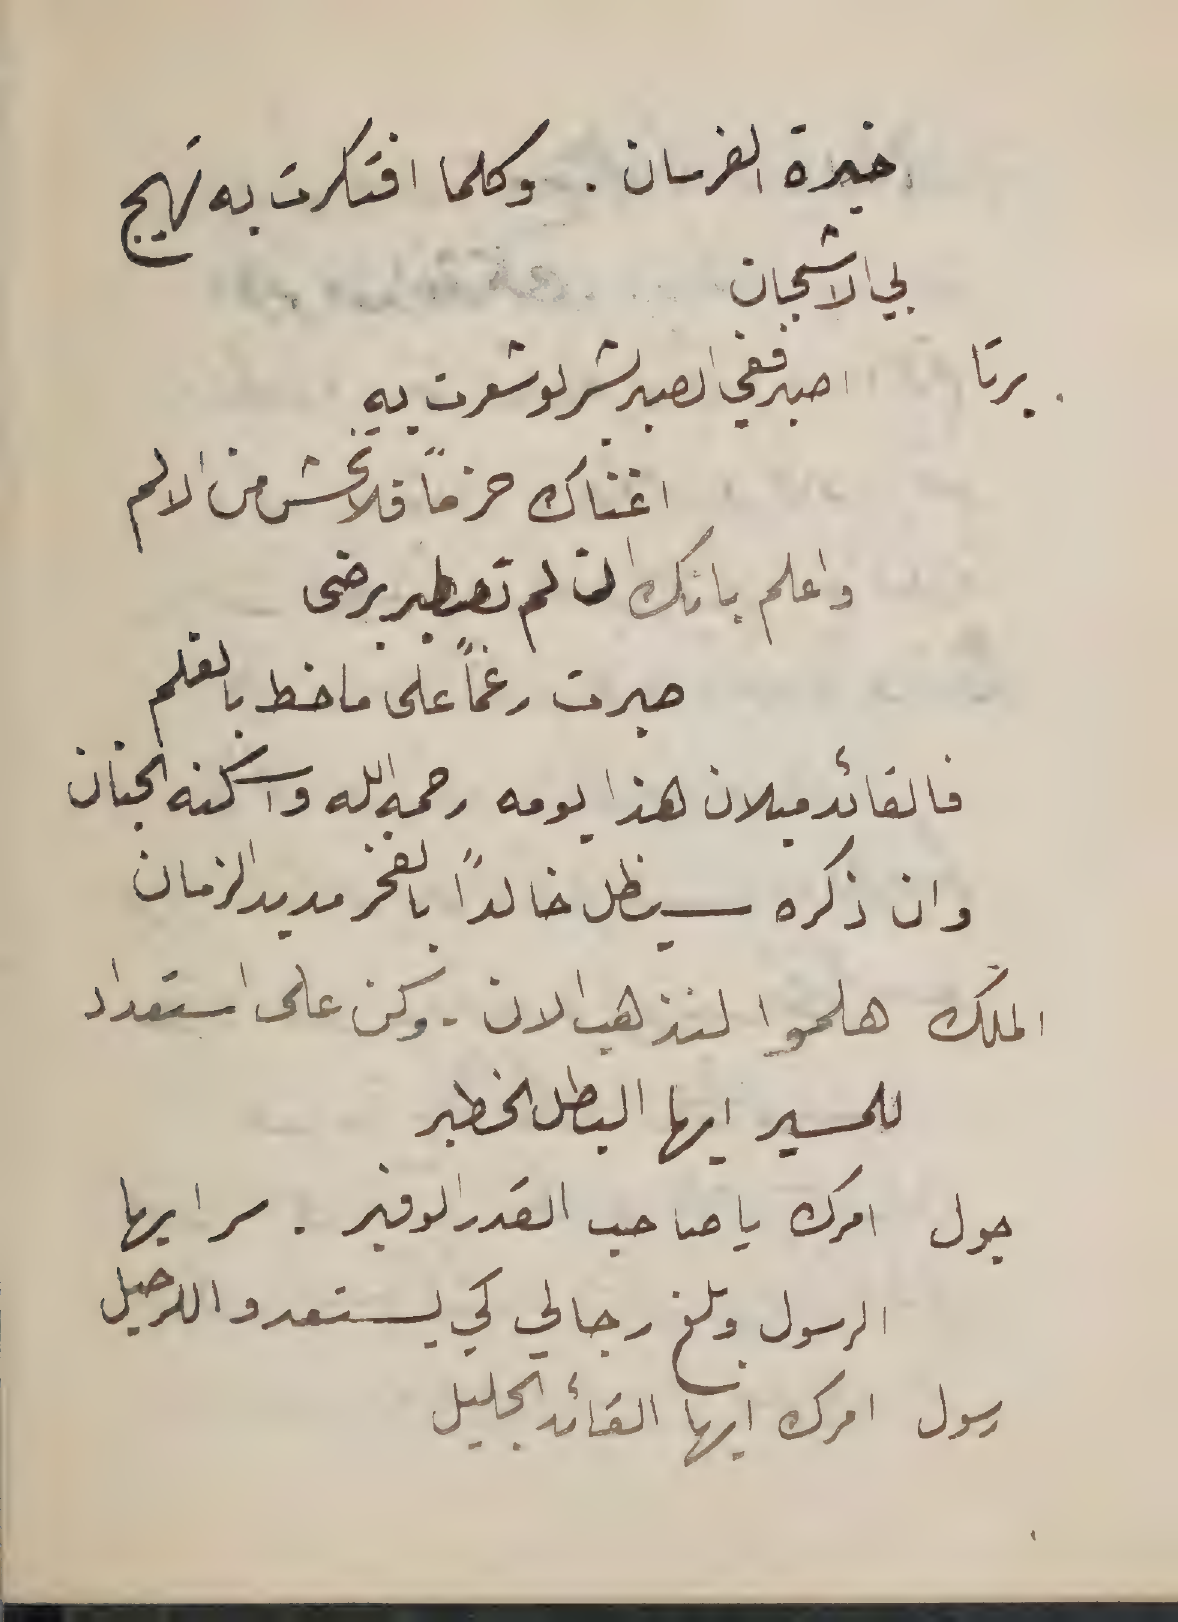 خيرة الفرسان . وكلما افتكرت به تهيج
بي الاشجان
برتا اصبر ففي الصبر لو شعرت به
اغناك حزماً فلا تخش من الالم
واعلم بانك ان لم تصطبر برضى
صبرت رغماً على ما خط بالقلم
فالقائد ميلان هذا يومه رحمه الله واسكنه الجنان
وان ذكره سيظل خالداً بالفخر مديد الزمان
الملك هلموا لنذهب الان . وكن على استعداد
للمسير ايها البطل الخطير
جول امرك يا صاحب القدر الوفير . سر ايها
الرسول وبلغ رجالي كي يستعدوا للرحيل
رسول امرك ايها القائد الجليل